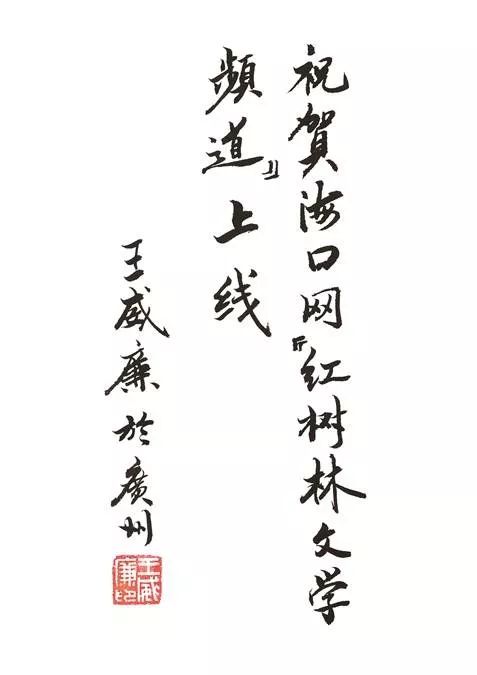 祝賀海口网『红树林文学
頻道』上线
王威廉於廣州
王威廉印